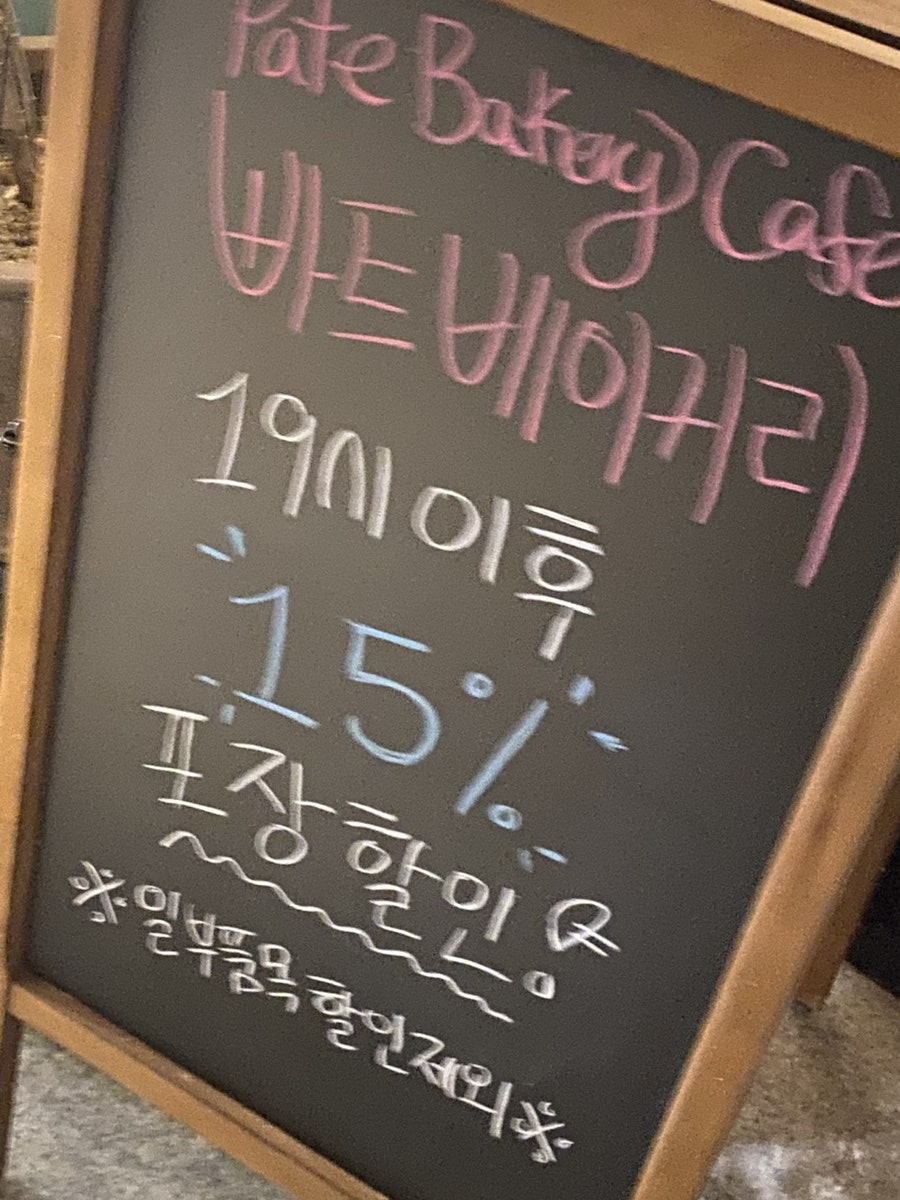 Pate Bakery Cafe
빠트베이커리
19시 이후
15%
포장 할인
※일부품목 할인제외※